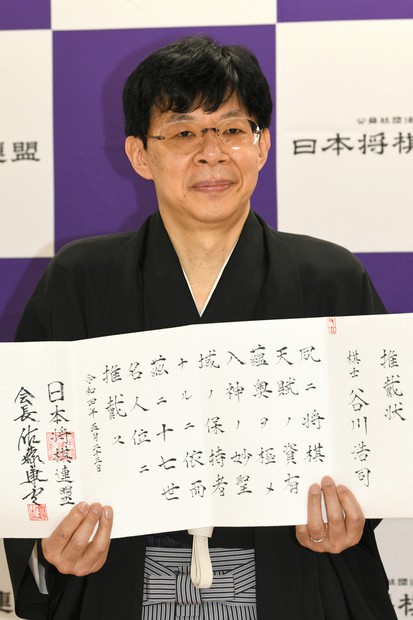 連盟
公益社団法
日本将棋
推戴状
棋士 谷川浩司
夙ニ将棋
天賦ノ資有
蘊奥ヲ極メ
入神ノ妙聖
域ノ保持者
ナルニ依而
茲ニ十七世
名人位ニ
推戴ス
令和四年五月二十三日
日本将棋連盟
会長 佐藤康光